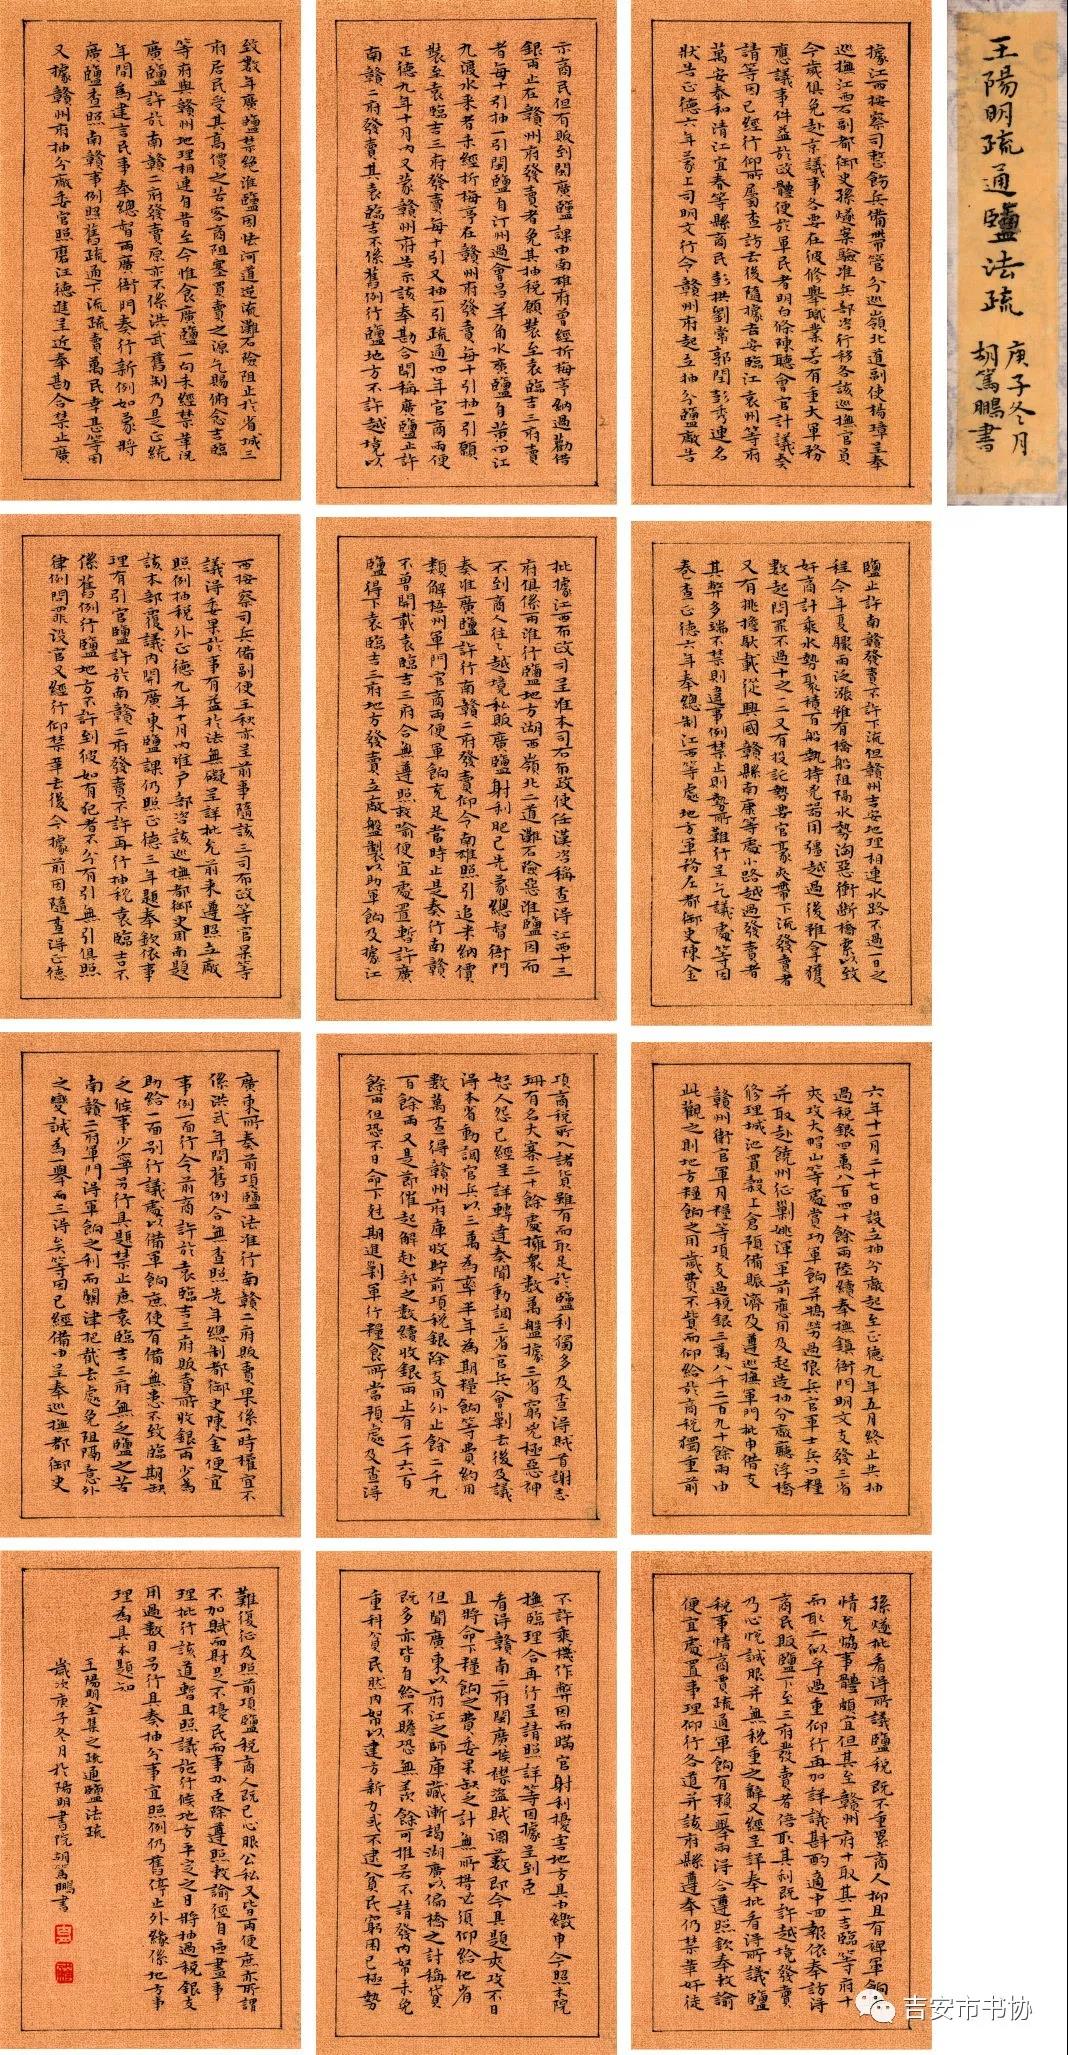 王陽明疏通鹽法疏
庚子冬月
胡篤鵬書
據江西按察司整飭兵備帶管分巡嶺北道副使楊璋呈奉
巡撫江西右副都御史孫燧案驗准兵部咨行移各該巡撫官員
今歲俱免赴京議事各要在彼修舉職業若有重大軍務
應議事件益於政體便於軍民者明白條陳聽會官計議奏
請等因已經行仰所屬查訪去後隨據吉安臨江袁州等府
萬安泰和清江宜春等縣商民彭拱劉常郭閏彭秀連名
狀告正德六年蒙上司明文行令贛州府起立抽分鹽廠告
示商民但有販到閩廣鹽課由南雄府曾經折梅亭納過勸借
銀兩止在贛州府發賣者免其抽稅願裝至袁臨吉三府賣
者每十引抽一引閩鹽自汀州過會昌羊角水廣鹽自黃田江
九渡水來者未經折梅亭在贛州府發賣每十引抽一引願
裝至袁臨吉三府發賣每十引又抽一引疏通四年官商兩便
正德九年十月內又蒙贛州府告示該奉勘合開稱廣鹽止許
南贛二府發賣其袁臨吉不係舊例行鹽地方不許越境以
致數年廣鹽禁絕淮鹽因怯河道逆流灘石險阻止於省城三
府居民受其高價之苦客商阻塞買賣之源乞賜俯念吉臨
等府與贛州地理相連自昔至今惟食廣鹽一向未經禁革況
廣鹽許於南贛二府發賣原亦不係洪武舊制乃是正統
年間為建言民事奉總督兩廣衙門奏行新例如蒙將
廣鹽查照南贛事例照舊疏通下流疏賣萬民幸甚等因
又據贛州府抽分廠委官照磨汪德進呈近奉勘合禁止廣
鹽止許南贛發賣不許下流但贛州吉安地理相連水路不過一日之
程今年夏驟雨泛漲雖有橋船阻隔水勢洶惡衝斷橋索以致
奸商計乘水勢聚積百船執持兇器用強越過後雖拿獲
數起問罪不過十之一二又有投託勢要官豪夾帶下流發賣者
又有挑擔馱載從興國贛縣南康等處小路越過發賣者
其弊多端不禁則違事例禁止則勢所難行呈乞議處等因
卷查正德六年奉總制江西等處地方軍務左都御史陳金
批據江西布政司呈准本司右布政使任漢咨稱查得江西十三
府俱係兩淮行鹽地方湖西嶺北二道灘石險惡淮鹽因而
不到商人往往越境私販廣鹽射利肥己先蒙總督衙門
奏准廣鹽許行南贛二府發賣仰令南雄照引追米納價
類解梧州軍門官商兩便軍餉充足當時止是奏行南贛
不曾開載袁臨吉三府合無遵照敕諭便宜處置暫許廣
鹽得下袁臨吉三府地方發賣立廠盤掣以助軍餉及據江
西按察司兵備副使王秩亦呈前事隨該三司布政等官呈等
議得委果於事有益於法無礙呈詳批允前來遵照立廠
照例抽稅外正德九年十月內准戶部咨該巡撫都御史周南題
該本部覆議內開廣東鹽課仍照正德三年題奉欽依事
理有引官鹽許於南贛二府發賣不許再行抽稅袁臨吉不
係舊例行鹽地方不許到彼如有犯者不分有引無引俱照
律例問罪沒官又經行仰禁革去後今據前因隨查得正德
六年十一月二十七日設立抽分廠起至正德九年五月終止共抽
過稅銀四萬八百四十餘兩陸續奉撫鎮衙門明文支發三省
夾攻大帽山等處賞功軍餉并犒勞過狼兵官軍士兵口糧
并取赴饒州征剿姚源軍前應用及起造抽分廠廳浮橋
修理城池買穀上倉預備賑濟及遵巡撫軍門批申借支
贛州衛官軍月糧等項支過稅銀三萬八千二百九十餘兩由
此觀之則地方糧餉之用歲費不貲而仰給於商稅獨重前
項商稅所入諸貨雖有而取足於鹽利獨多及查得賊首謝志
珊有名大寨三十餘處擁眾數萬盤據三省窮兇極惡神
怒人怨已經呈詳轉達奏聞動調三省官兵會剿去後及議
得本省動調官兵以三萬為率半年為期糧餉等費約用
數萬查得贛州府庫收貯前項稅銀除支用外止餘二千九
百餘兩又是節催起解赴部之數續收銀兩止有一千六百
餘兩但恐不日命下剋期進剿軍行糧食所當預處及查得
廣東所奏前項鹽法准行南贛二府販賣果係一時權宜不
係洪武年間舊例合無查照先年總制都御史陳金便宜
事例一面行令前商許於袁臨吉三府販賣所收銀兩少為
助給一面別行議處以備軍餉庶使有備無患不致臨期缺
乏候事少寧另行具題禁止庶袁臨吉三府無乏鹽之苦
南贛二府軍門得軍餉之利而關津把截去處免阻隔意外
之變誠為一舉而三得矣等因已經備申呈奉巡撫都御史
孫燧批看得所議鹽稅既不重累商人抑且有裨軍餉
情允協事體頗宜但其至贛州府十取其一吉臨等府十
而取二似乎過重仰行再加詳議斟酌適中回報依奉訪得
商民販鹽下至三府發賣者倍取其利既許越境發賣
乃心悅誠服并無稅重之辭又經呈詳奉批看得所議鹽
稅事情商賈疏通軍餉有賴一舉兩得合遵照欽奉敕諭
便宜處置事理仰行各道并該府縣遵奉仍禁革奸徒
不許乘機作弊因而瞞官射利擾害地方具由繳申今照本院
撫臨理合再行呈請照詳等因據呈到臣
看得贛南二府閩廣喉襟盜賊淵藪即今具題夾攻不日
且將命下糧餉之費委果缺乏計無所措必須仰給他省
但聞廣東以府江之師庫藏漸竭湖廣以偏橋之討稱貸
既多亦皆自給不贍恐無羨餘可推若不請發內帑未免
重科貧民然內帑以建方新力或不逮貧民窮困已極勢
難復征及照前項鹽稅商人既已心服公私又皆兩便庶亦所謂
不加賦而財足不擾民而事辦臣除遵照敕諭徑自區畫事
理批行該道暫且照議施行候地方平定之日將抽過稅銀支
用過數目另行具奏抽分事宜照例仍舊停止外緣係地方事
理為具本題知
王陽明全集之疏通鹽法疏
歲次庚子冬月於陽明書院胡篤鵬書
吉安市书协